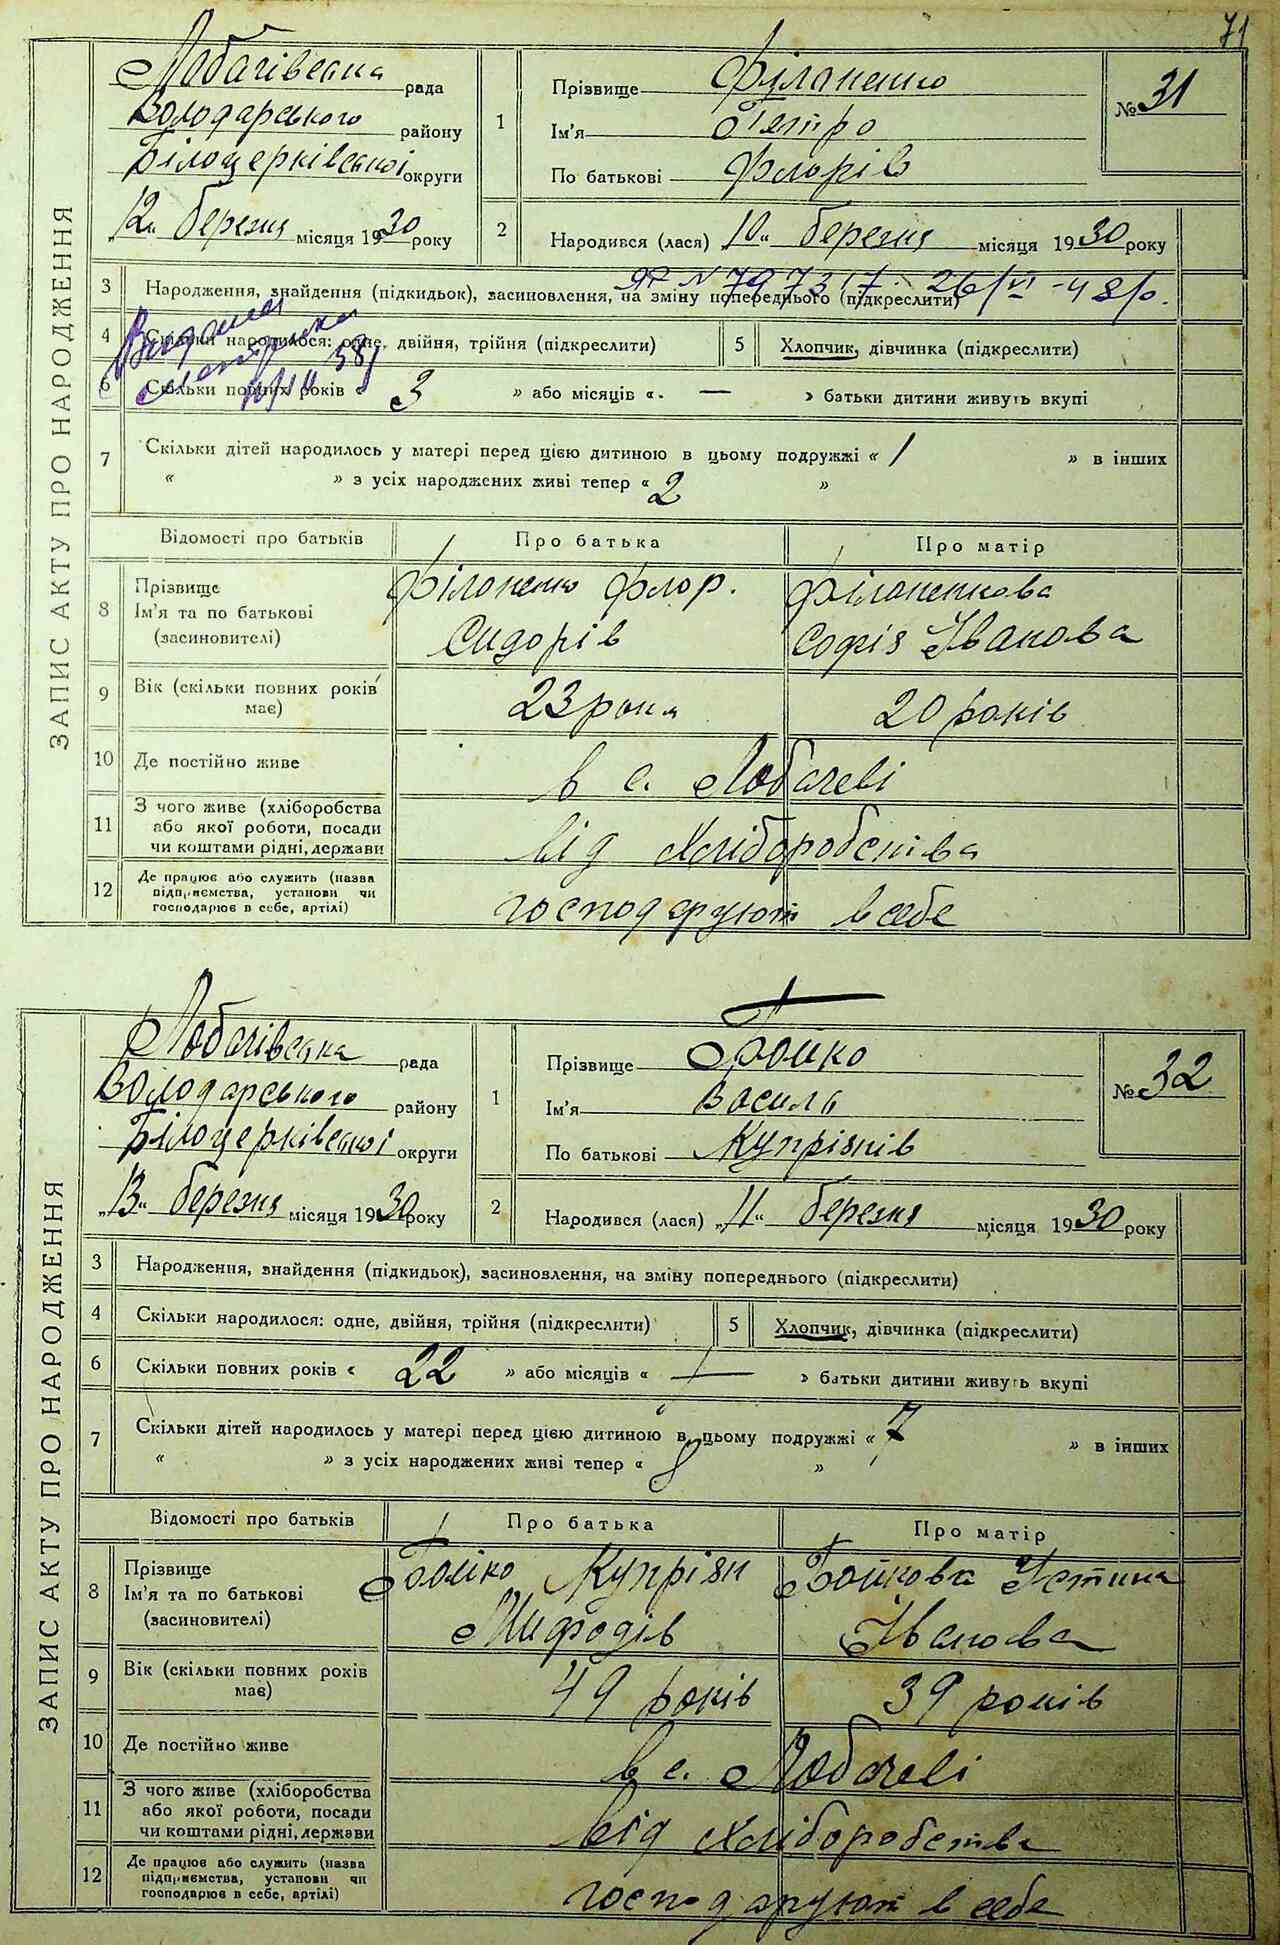 71
ЗАПИС АКТУ ПРО НАРОДЖЕННЯ
Лобачівська рада
Володарського району
Білоцерківської округи
„12“ березня місяця 1930 року
1 Прізвище Філоненко
Ім'я Петро
По батькові Флорів
№ 31
2 Народився (лася) „10“ березня місяця 1930 року
ЯР № 797317 26/VI-48р.
3 Народження, знайдення (підкидьок), засиновлення, на зміну попереднього (підкреслити)
Видана
метрика
4 Скільки народилося: одне, двійня, трійня (підкреслити) 5 Хлопчик, дівчинка (підкреслити)
6 Скільки повних років « 3 » або місяців « — » батьки дитини живуть вкупі
7 Скільки дітей народилось у матері перед цією дитиною в цьому подружжі « 1 » в інших
« » з усіх народжених живі тепер « 2 »
Відомості про батьків Про батька Про матір
8 Прізвище Філоненко Флор. Філоненкова
Ім'я та по батькові Сидорів Софія Іванова
(засиновителі)
9 Вік (скільки повних років має) 23 роки 20 років
10 Де постійно живе в с. Лобачеві
11 З чого живе (хліборобства
або якої роботи, посади від хліборобства
чи коштами рідні, держави
12 Де працює або служить (назва
підприємства, установи чи господарюют в себе
господарює в себе, артілі)
ЗАПИС АКТУ ПРО НАРОДЖЕННЯ
Лобачівська рада
Володарського району
Білоцерківської округи
„13“ березня місяця 1930 року
1 Прізвище Бойко
Ім'я Василь
По батькові Купріянів
№ 32
2 Народився (лася) „11“ березня місяця 1930 року
3 Народження, знайдення (підкидьок), засиновлення, на зміну попереднього (підкреслити)
4 Скільки народилося: одне, двійня, трійня (підкреслити) 5 Хлопчик, дівчинка (підкреслити)
6 Скільки повних років « 22 » або місяців « — » батьки дитини живуть вкупі
7 Скільки дітей народилось у матері перед цією дитиною в цьому подружжі « 7 » в інших
« » з усіх народжених живі тепер « 8 »
Відомості про батьків Про батька Про матір
8 Прізвище Бойко Купріян Бойкова Устина
Ім'я та по батькові Мифодів Іванова
(засиновителі)
9 Вік (скільки повних років має) 49 років 39 років
10 Де постійно живе в с. Лобачеві
11 З чого живе (хліборобства
або якої роботи, посади від хліборобства
чи коштами рідні, держави
12 Де працює або служить (назва
підприємства, установи чи господарюют в себе
господарює в себе, артілі)